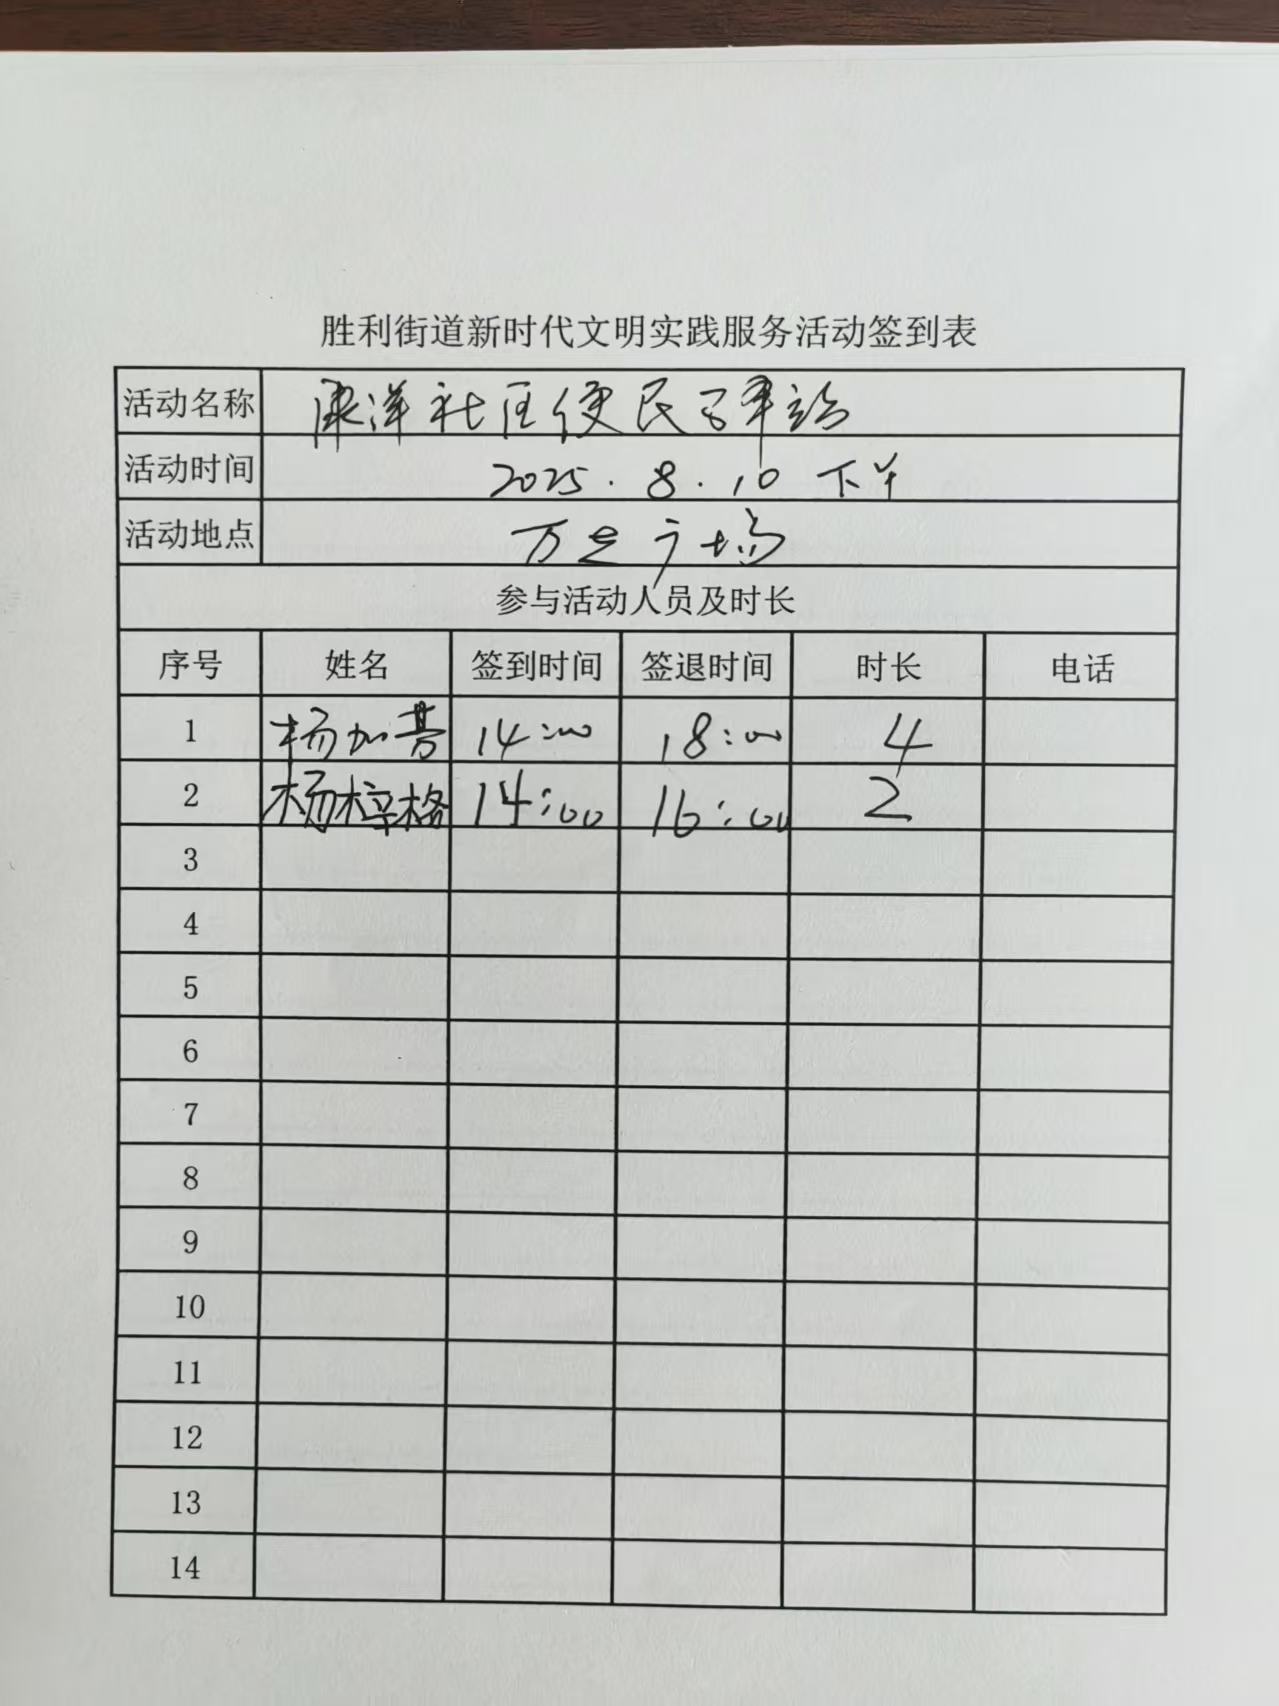 胜利街道新时代文明实践服务活动签到表
活动名称 康洋社区便民 站
活动时间 2025.8.10 下午
活动地点 万达广场
参与活动人员及时长
序号 姓名 签到时间 签退时间 时长 电话
1 杨加 14:00 18:00 4
2 杨梓格 14:00 16:00 2
3
4
5
6
7
8
9
10
11
12
13
14